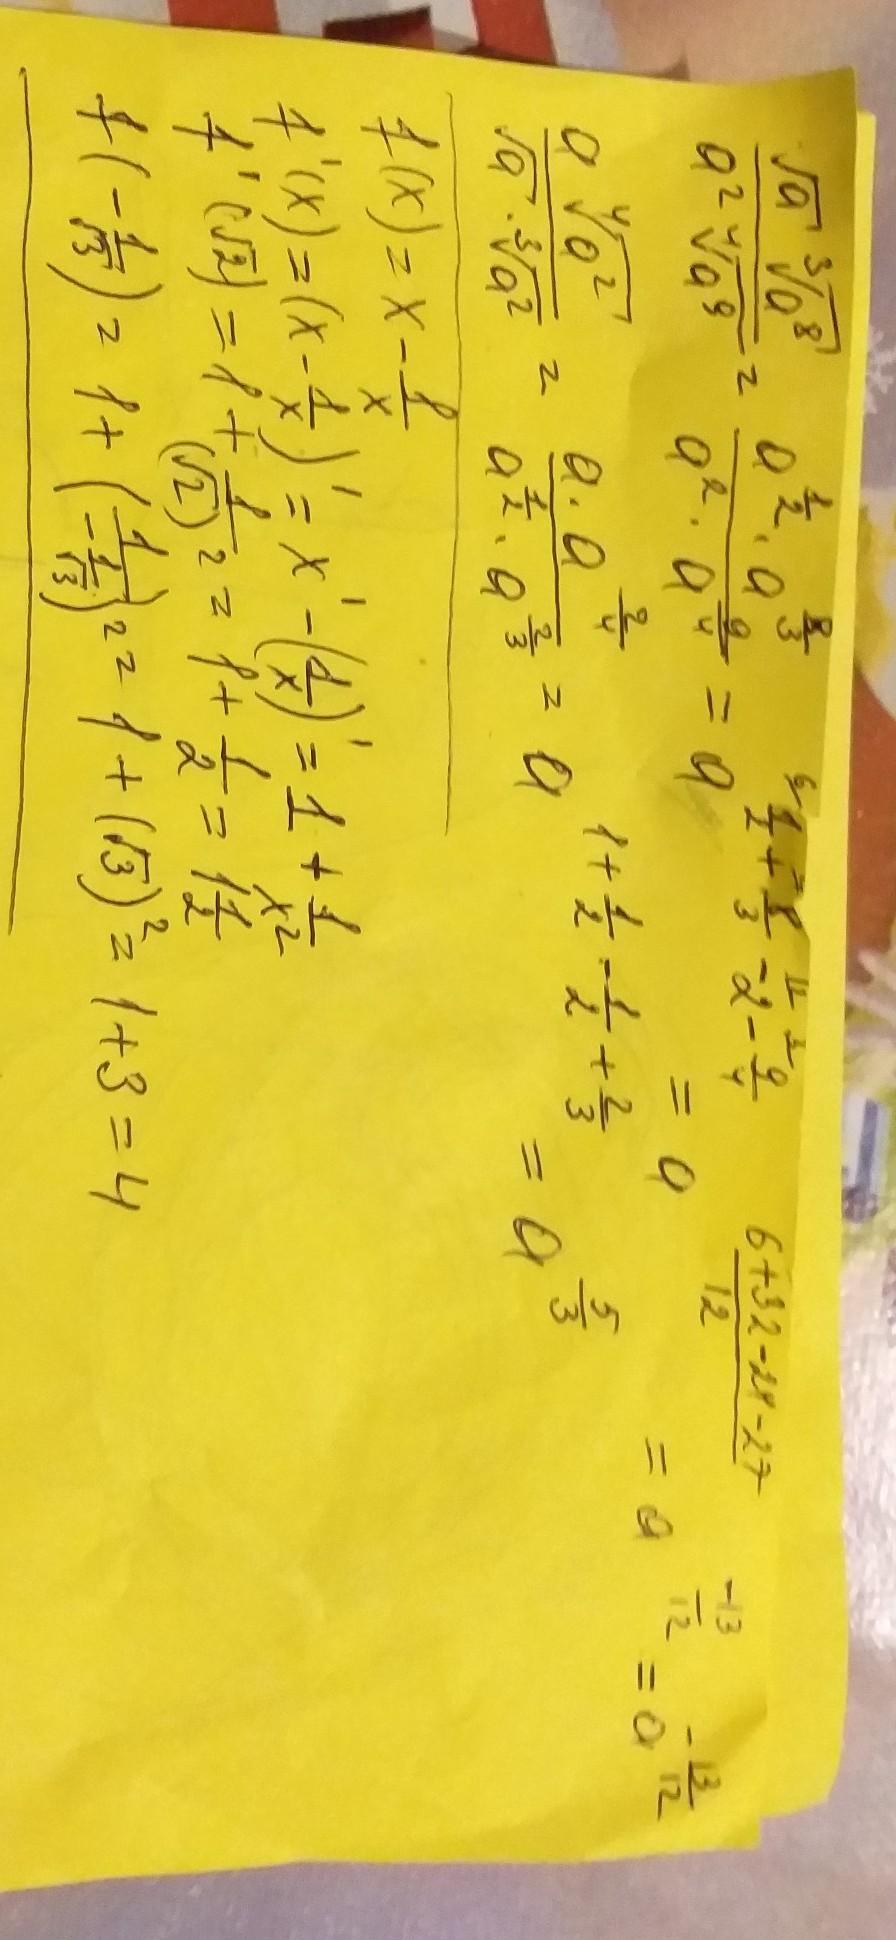 √a ∛a⁸ / a² ∜a⁹ = a^(1/2) · a^(8/3) / a² · a^(9/4) = a^(1/2 + 8/3 - 2 - 9/4) = a^((6+32-24-27)/12) = a^(-13/12) = a^(-13/12)
a ∜a² / √a · ∛a² = a · a^(2/4) / a^(1/2) · a^(2/3) = a^(1 + 1/2 - 1/2 + 2/3) = a^(5/3)
f(x) = x - 1/x
f'(x) = (x - 1/x)' = x' - (1/x)' = 1 + 1/x²
f'(√2) = 1 + 1/(√2)² = 1 + 1/2 = 1 1/2
f(-1/√3) = 1 + 1/(-1/√3)² = 1 + (√3)² = 1+3 = 4